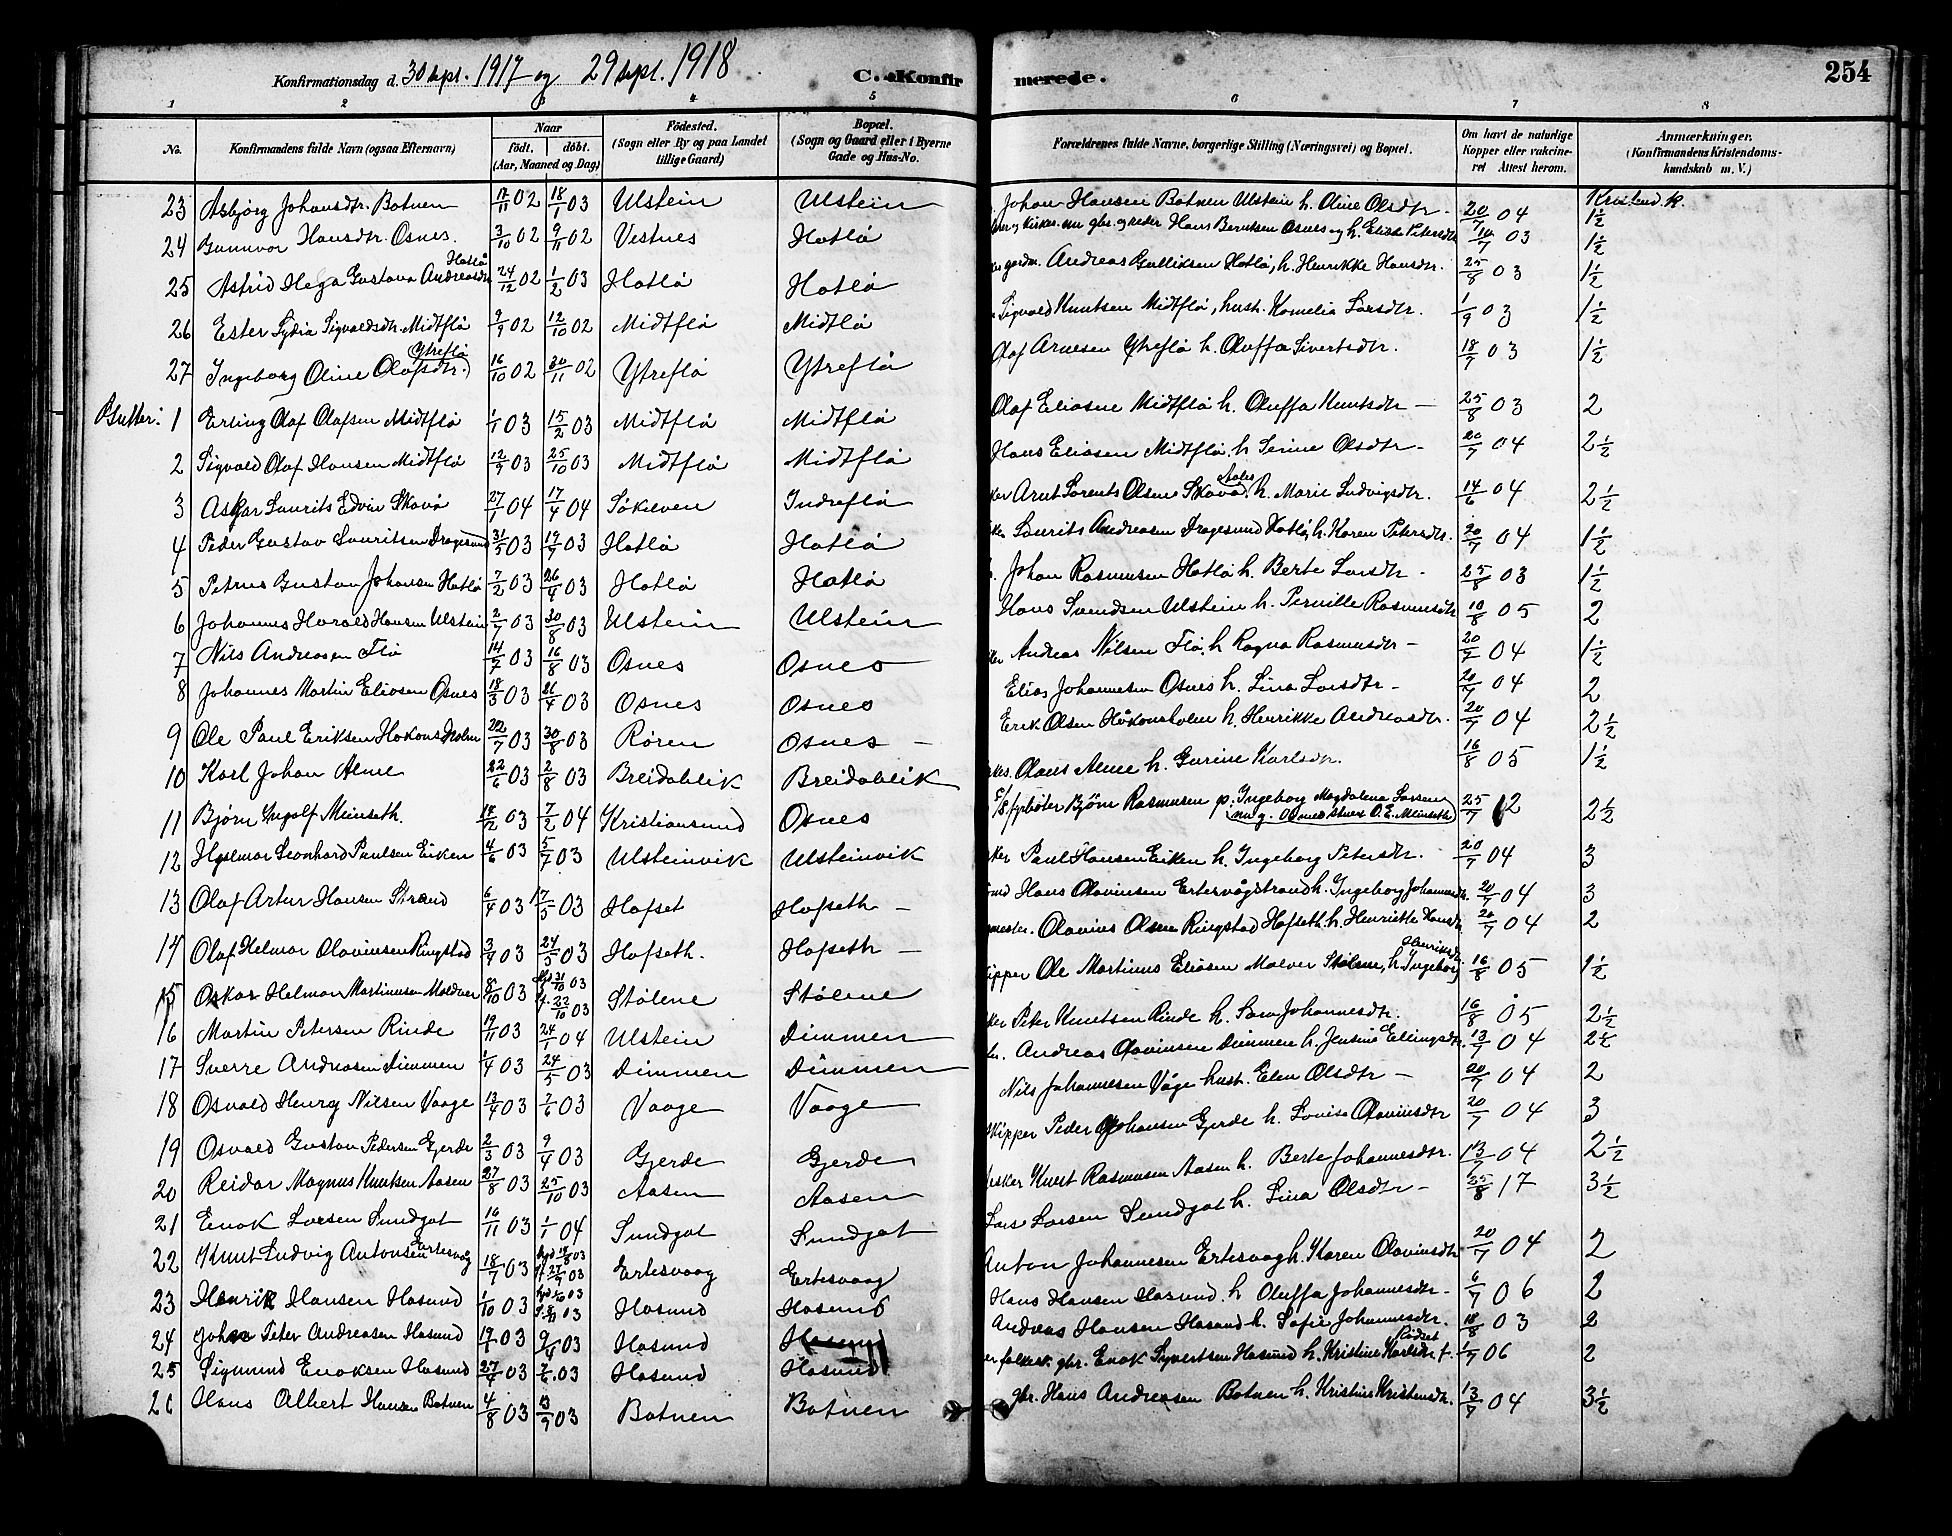 Konfirmationsdag d. 30 sept. 1917 og 29 sept. 1918 C. Konfirmerede. 254
1 2 3 4 5 6 7 8
No. Konfirmandens fulde Navn (ogsaa Efternavn) Naar født, døbt. (Aar, Maaned og Dag) Fødested. (Sogn eller By og paa Landet tillige Gaard) Bopæl. (Sogn og Gaard eller i Byerne Gade og Hus-No. Forældrenes fulde Navne, borgerlige Stilling (Næringsvei) og Bopæl. Om havt de naturlige Kopper eller vakcineret Attest herom. Anmærkninger. (Konfirmandens Kristendomskundskab m. V.)
Kristend.k.
23 Asbjørg Johansdtr. Botnen 17/11 02 18/1 03 Ulstein Ulstein Johan Hansen Botnen Ulstein h. Oline Olsdtr - 20/7 04 1½
24 Gunnvor Hansdtr. Osnes. 3/10 02 9/11 02 Vestnes Hatlø gbr. og reder Hans Berntsen Osnes og h. Elise Petersdtr 10/7 03 1½
25 Astrid Helga Gustava Andreasdtr Hatlø 24/12 02 1/2 03 Hatlø Hatlø gardm. Andreas Gulliksen Hatlø, h. Henrikke Hansdtr. 25/8 03 1½
26 Ester Lydia Sigvaldsdtr. Midtflø 9/9 02 12/10 02 Midtflø Midtflø Sigvald Knutsen Midtflø, hust. Kornelia Larsdtr. 1/9 03 1½
27 Ingeborg Oline Olafsdtr. Ytreflø 16/10 02 30/11 02 Ytreflø Ytreflø Olaf Arnesen Ytreflø h. Oluffa Sivertsdtr. 18/7 03 1½
Gutter: 1 Erling Olaf Olafsen Midtflø 1/1 03 15/2 03 Midtflø Midtflø Olaf Eliasen Midtflø h. Oluffa Knutsdtr - 25/8 03 2
2 Sigvald Olaf Hansen Midtflø 12/9 03 25/10 03 Midtflø Midtflø Hans Eliasen Midtflø. h Serine Olsdtr - 20/7 04 2½
3 Askar Laurits Edvin Skavø 27/1 04 17/4 04 Søkelven Indreflø Arnt Lorents Olsen Skavø, h. Marie Ludvigsdtr. 14/6 04 2½
4 Peder Gustav Lauritsen Dragesund 31/5 03 19/7 03 Hatlø Hatlø Laurits Andreasen Dragesund Hatlø, h. Karen Petersdtr. 20/7 04 1½
5 Petrus Gustav Johansen Hatlø 7/2 03 26/4 03 Hatlø Hatlø Johan Rasmusen Hatlø h. Berte Larsdtr - 25/8 03 1½
6 Johannes Harald Hansen Ulstein 2/7 03 30/8 03 Ulstein Ulstein Hans Svendsen Ulstein h. Pernille Rasmusdtr 10/8 05 2
7 Nils Andreasen Flø 14/7 03 16/8 03 Osnes Osnes Andreas Nilsen Flø, h Ragna Rasmusdtr - 20/7 04 1½
8 Johannes Martin Eliasen Osnes 18/3 03 26/4 03 Osnes Osnes Elias Johannesen Osnes h. Lina Larsdtr - 20/7 04 2
9 Ole Paul Eriksen Hakonsholm 22/7 03 30/8 03 Røren Osnes - Erik Olsen Håkonsholm h. Henrikke Andreasdtr. 20/7 04 2½
10 Karl Johan Alme 22/6 03 2/8 03 Breidablik Breidablik Olaus Alme h. Gurine Karlsdtr. 16/8 05 1½
11 Bjørn Ingolf Meinseth. 18/12 03 7/2 04 Kristiansund Osnes fyrbøter Bjørn Rasmusen p. Ingeborg Magdalena Larsen 25/7 12 2½
12 Hjelmar Leonhard Paulsen Eiken 4/6 03 5/7 03 Ulsteinvik Ulsteinvik Paul Hansen Eiken h. Ingeborg Petersdtr. 20/7 04 3
13 Olaf Artur Hansen Strand 6/4 03 17/5 03 Hofset Hofseth - Hans Olavinsen Ertesvågstrand h. Ingeborg Johannesdtr. 20/7 04 3
14 Olaf Helmar Olavinsen Ringstad 3/4 03 24/5 03 Hofseth. Hofseth - Olavius Olsen Ringstad Hofseth. h. Henriette Hansdtr 20/7 04 2
15 Oskar Helmar Martinusen Moldver 8/10 03 22/10 03 Stølene Stølene Ole Martinus Eliasen Molver Stølene, h Ingeborg Henriksdtr 16/8 05 1½
16 Martin Petersen Rinde 19/11 03 24/1 04 Ulstein Dimmen Peter Knutsen Rinde h. Sara Johannesdtr. 16/8 05 2½
17 Sverre Andreasen Dimmen 1/4 03 24/5 03 Dimmen Dimmen Andreas Olavinsen Dimmen h. Jensine Ellingsdtr. 13/7 04 2½
18 Osvald Henry Nilsen Vaage 13/4 03 7/6 03 Vaage Vaage Nils Johannesen Våge hust. Elen Olsdtr - 20/7 04 2
19 Osvald Gustav Pedersen Gjerde 2/3 03 9/4 03 Gjerde Gjerde skipper Peder Johansen Gjerde h. Lovise Olavinsdtr 20/7 04 3
20 Reidar Magnus Knutsen Aasen 27/8 03 25/10 03 Aasen Aasen Knut Rasmusen Aasen h. Berte Johannesdtr. 13/7 04 2½
21 Enok Larsen Sundgot 16/11 03 1/1 04 Sundgot Sundgot Lars Larsen Sundgot h. Lina Olsdtr - 25/8 17 3½
22 Knut Ludvig Antonsen Ertesvaag 18/7 03 27/9 03 Ertesvaag Ertesvaag Anton Johannesen Ertesvaag h. Karen Olavinsdtr 20/7 04 2
23 Henrik Hansen Hasund 1/10 03 Hasund Hasund Hans Hansen Hasund. h Oluffa Johannesdtr - 6/7 06 2
24 Johan Peter Andreasen Hasund 03 03 Hasund Hasund Andreas Hansen Hasund h. Sofie Johannesdtr. 18/8 03 2
25 Sigmund Enoksen Hasund 27/4 03 7/6 03 Hasund Hasund gbr. Enok Syvertsen Hasund h. Kristine Karlsdtr f. Rødset 1/7 06 2
26 Hans Albert Hansen Botnen 4/8 03 13/9 03 Botnen Botnen gbr. Hans Andreasen Botnen h. Kristine Kristensdtr. 13/7 04 3½